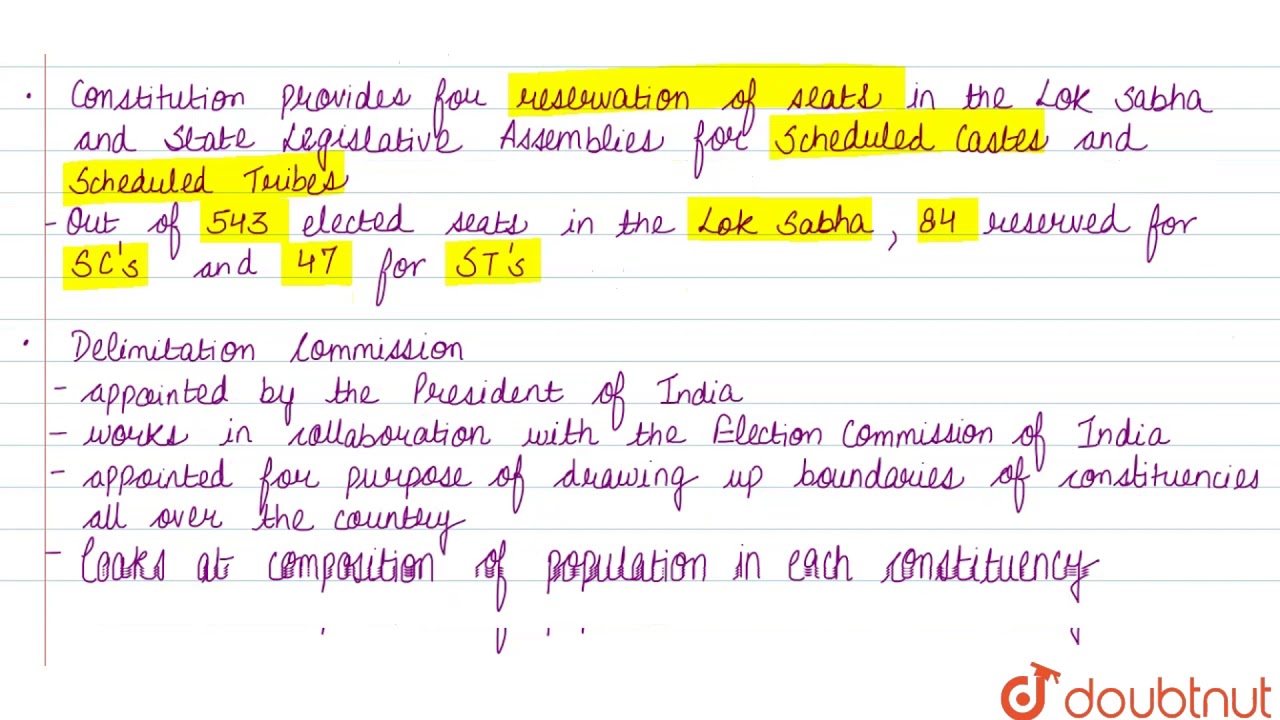 • Constitution provides for reservation of seats in the Lok Sabha
and State Legislative Assemblies for Scheduled Castes and
Scheduled Tribes
- Out of 543 elected seats in the Lok Sabha, 84 reserved for
SC's and 47 for ST's
• Delimitation Commission
- appointed by the President of India
- works in collaboration with the Election Commission of India
- appointed for purpose of drawing up boundaries of constituencies
all over the country
- looks at composition of population in each constituency
doubtnut